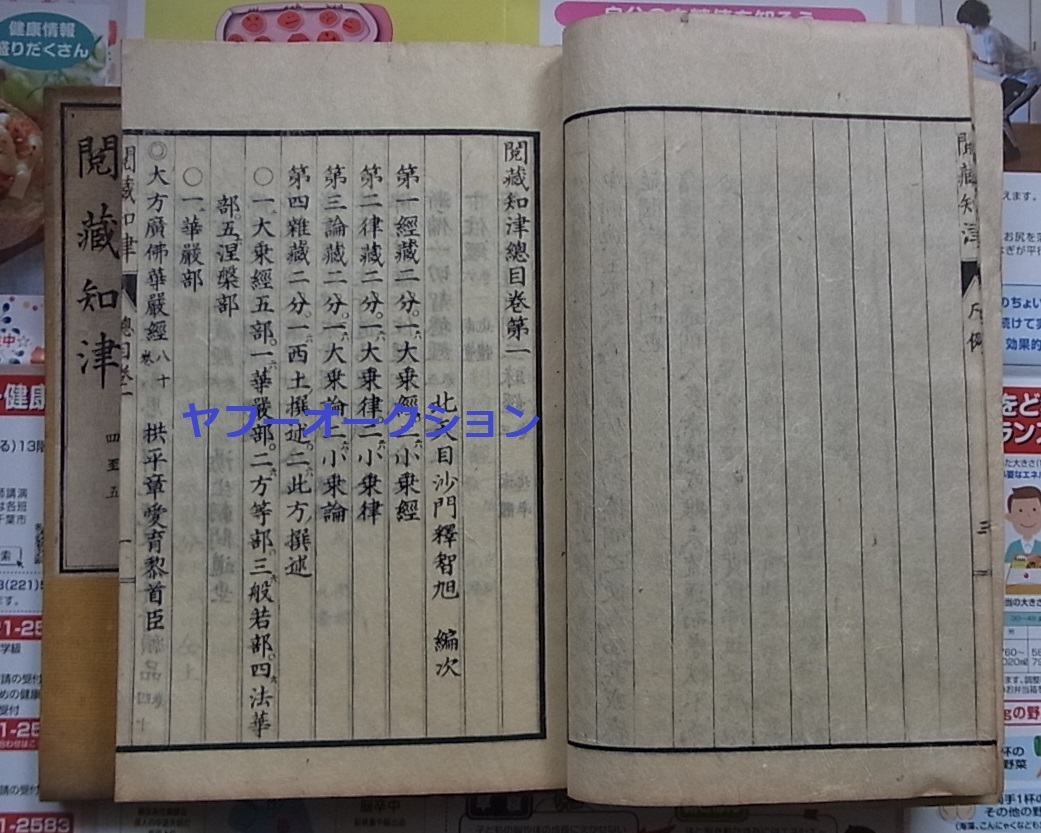 閱藏知津總目卷第一
北天目沙門釋智旭 編次
第一經藏二分。一大乘經。二小乘經
第二律藏二分。一大乘律。二小乘律
第三論藏二分。一大乘論。二小乘論
第四雜藏二分。一西土撰述。二此方撰述
○一大乘經五部。一華嚴部。二方等部。三般若部。四法華
部。五涅槃部
○一華嚴部
◎大方廣佛華嚴經 八十卷 拱平章愛育黎首臣
閱藏知津 總目卷一 一
閱藏知津
四至五
閱藏知津 凡例 三
ヤフーオークション
健康情報
盛りだくさん
その他の野菜